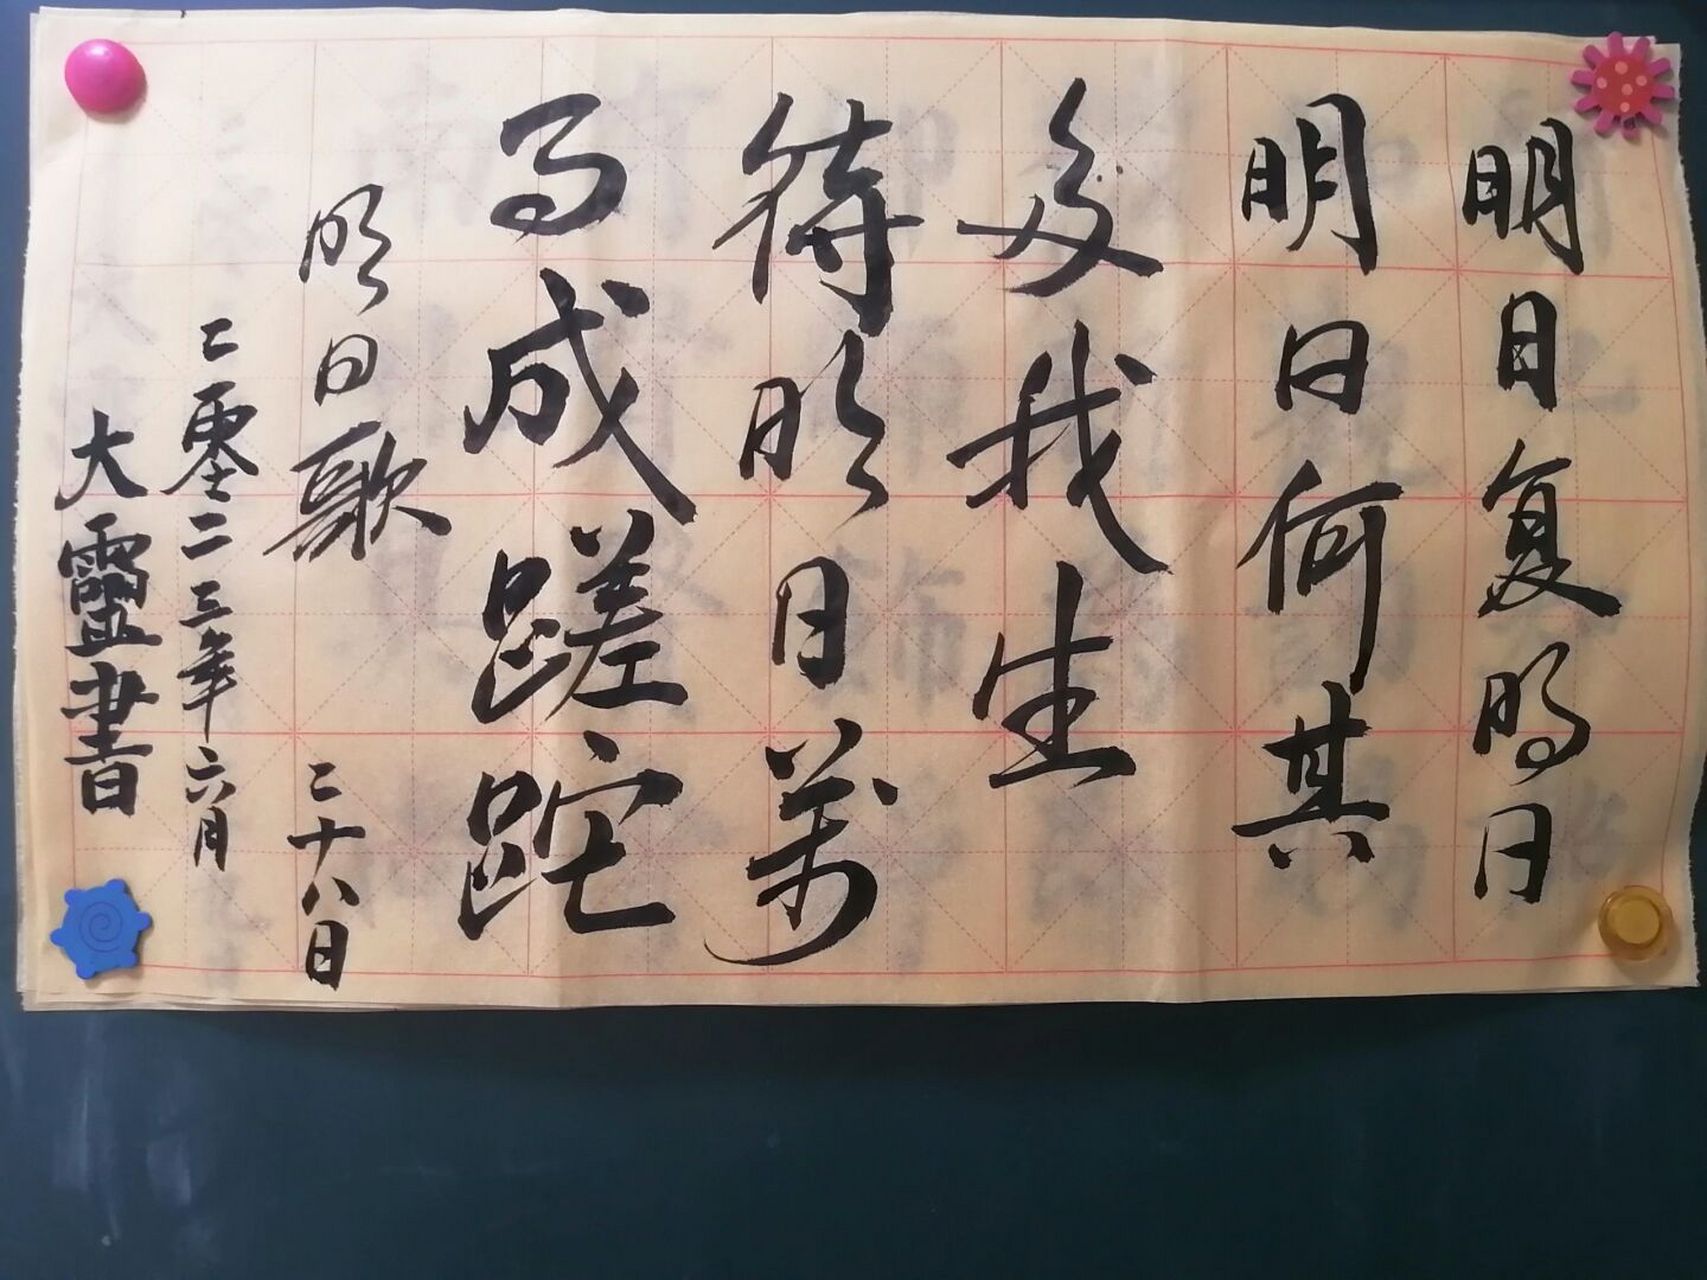 明日复明日
明日何其
多我生
待明日萬
事成蹉跎
明日歌
二零二三年六月
二十八日
大靈書